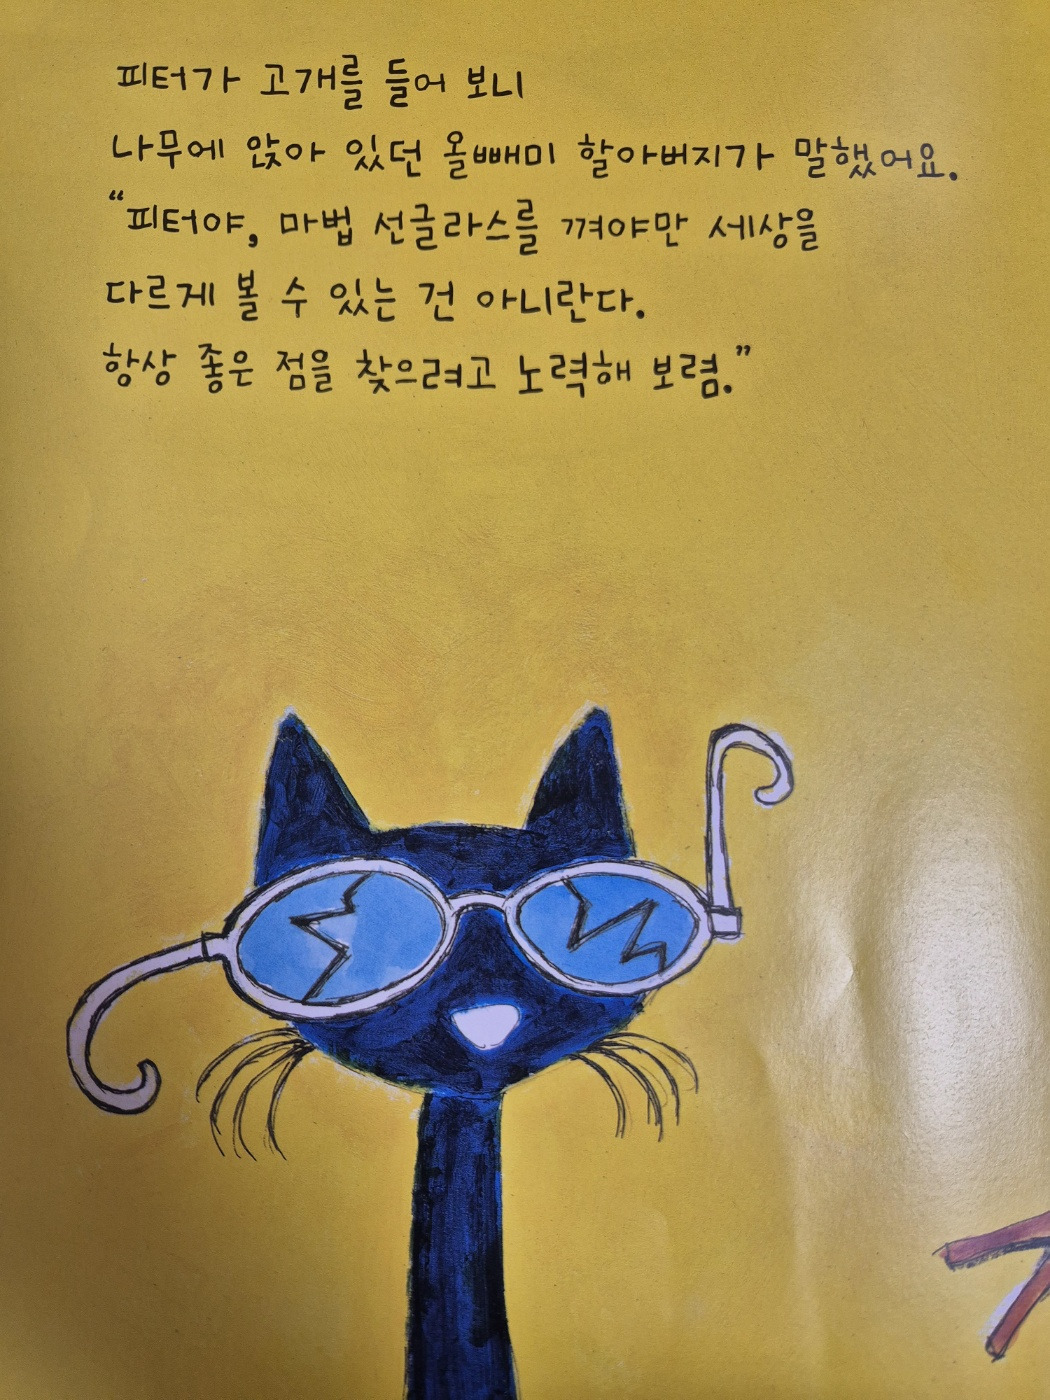 피터가 고개를 들어 보니
나무에 앉아 있던 올빼미 할아버지가 말했어요.
“피터야, 마법 선글라스를 껴야만 세상을
다르게 볼 수 있는 건 아니란다.
항상 좋은 점을 찾으려고 노력해 보렴.”